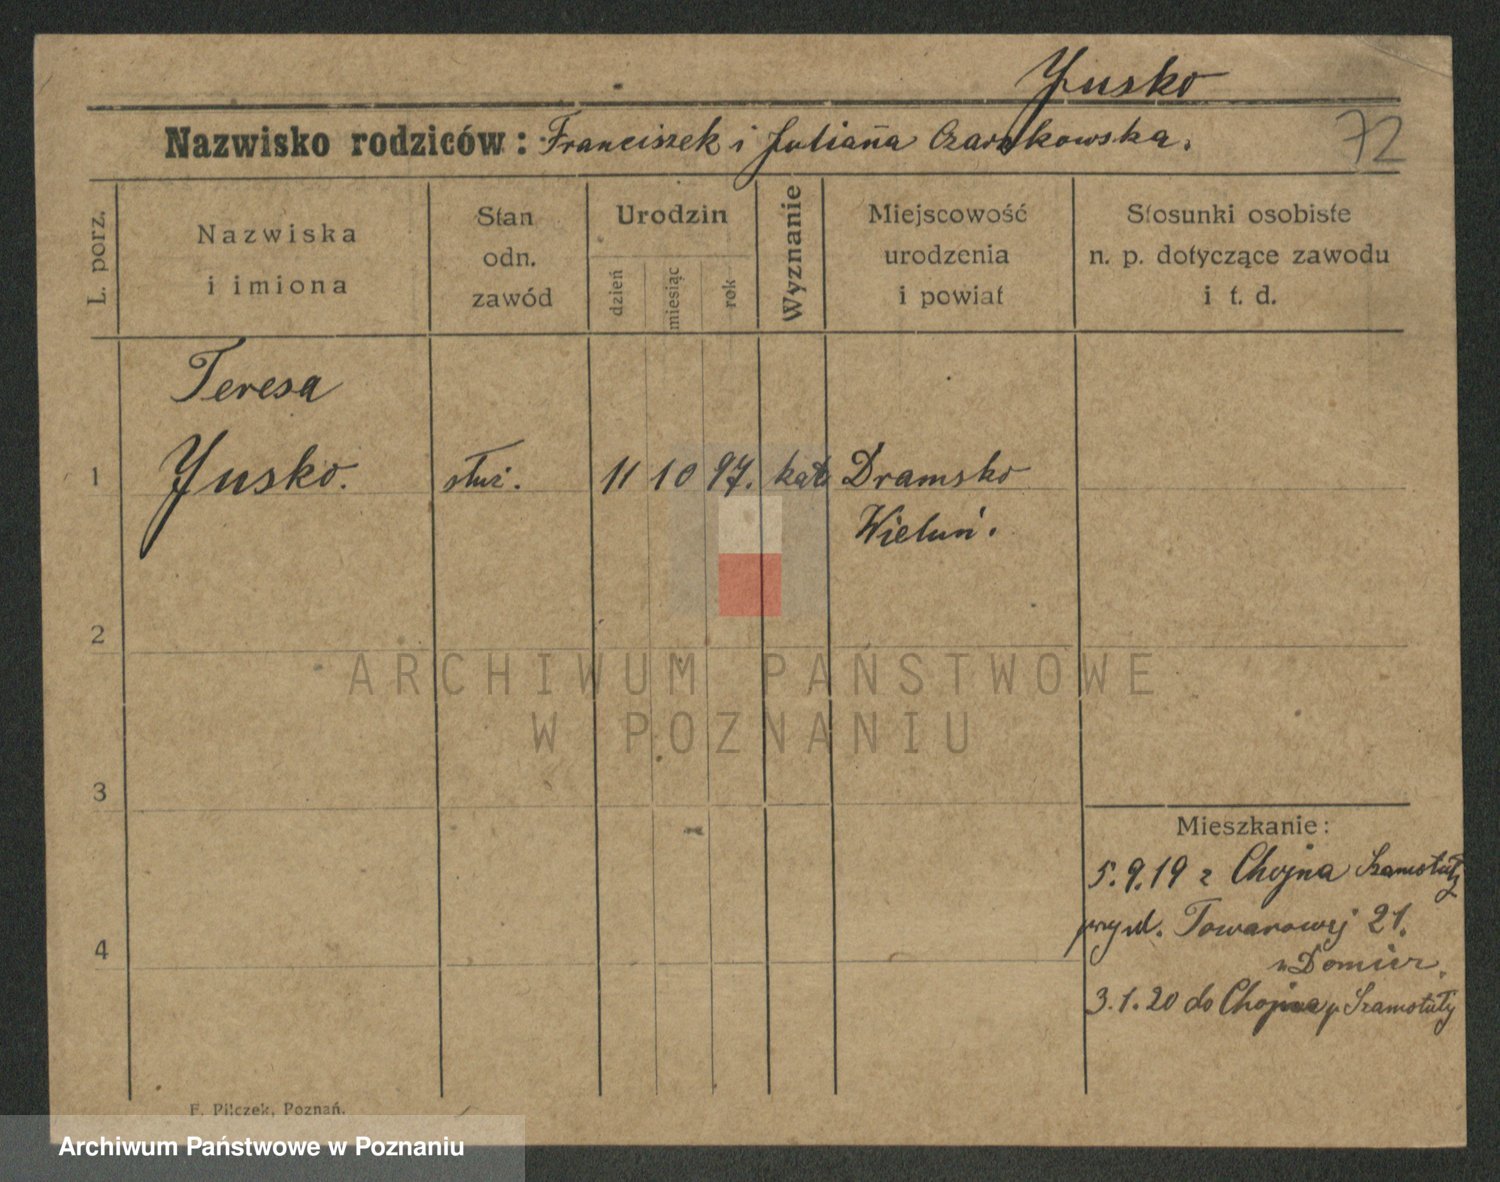 Yusko
72
Nazwisko rodziców: Franciszek i Julianna Czarnkowska.
L. porz.
Nazwiska
i imiona
Stan
odn.
zawód
Urodzin
dzień
miesiąc
rok
Wyznanie
Miejscowość
urodzenia
i powiat
Stosunki osobiste
n. p. dotyczące zawodu
i t. d.
Teresa
1 Yusko. służ. 11 10 97. kat. Dramsko
Wieluń.
2
3
4
Mieszkanie:
5.9.19 z Chojna Szamotuły
Towarowej 21.
u Domier.
3.1.20 do Chojna p Szamotuły
F. Pilczek, Poznań.
ARCHIWUM PAŃSTWOWE
W POZNANIU
Archiwum Państwowe w Poznaniu